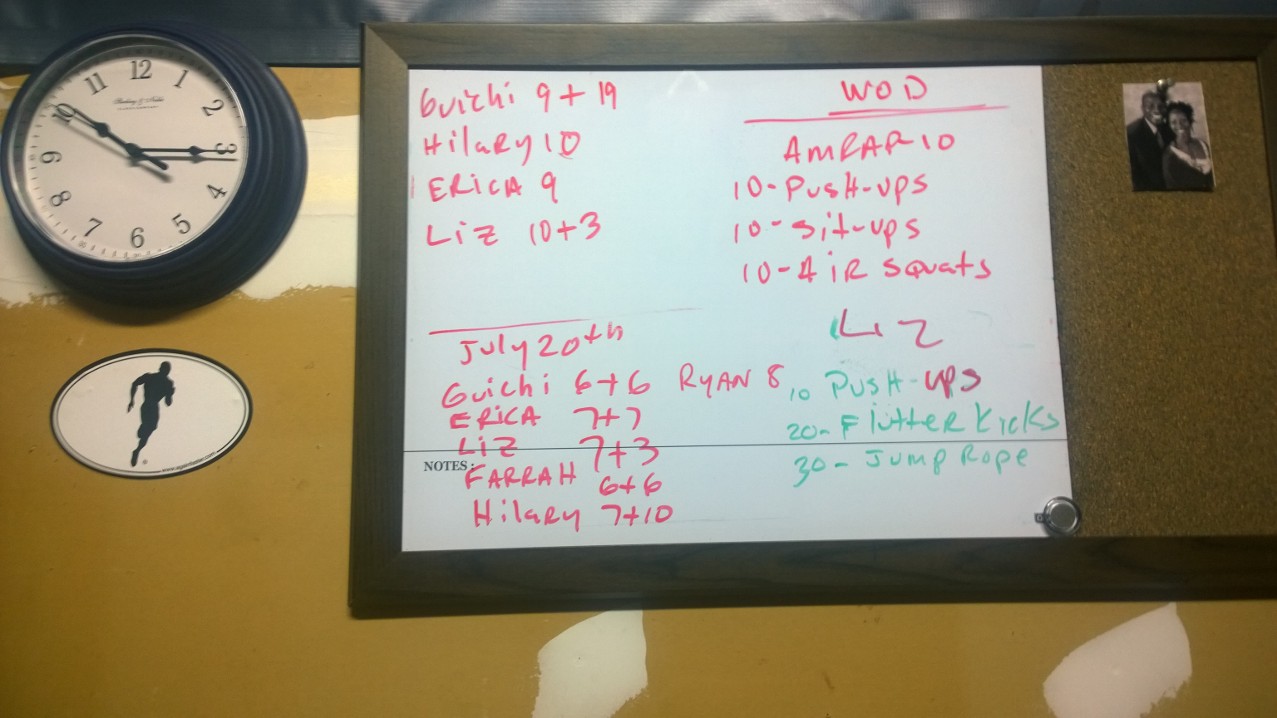 12
11 1
10 2
9 3
8 4
7 5
6
Guichi 9+19
Hilary 10
ERICA 9
Liz 10+3
WOD
AMRAP 10
10-Push-ups
10-Sit-ups
10-AiR Squats
July 20th
Guichi 6+6 RYAN 8
ERICA 7+7
Liz 7+3
NOTES:
FARRAH 6+6
Hilary 7+10
Liz
10 Push-ups
20-Flutter Kicks
30-Jump Rope